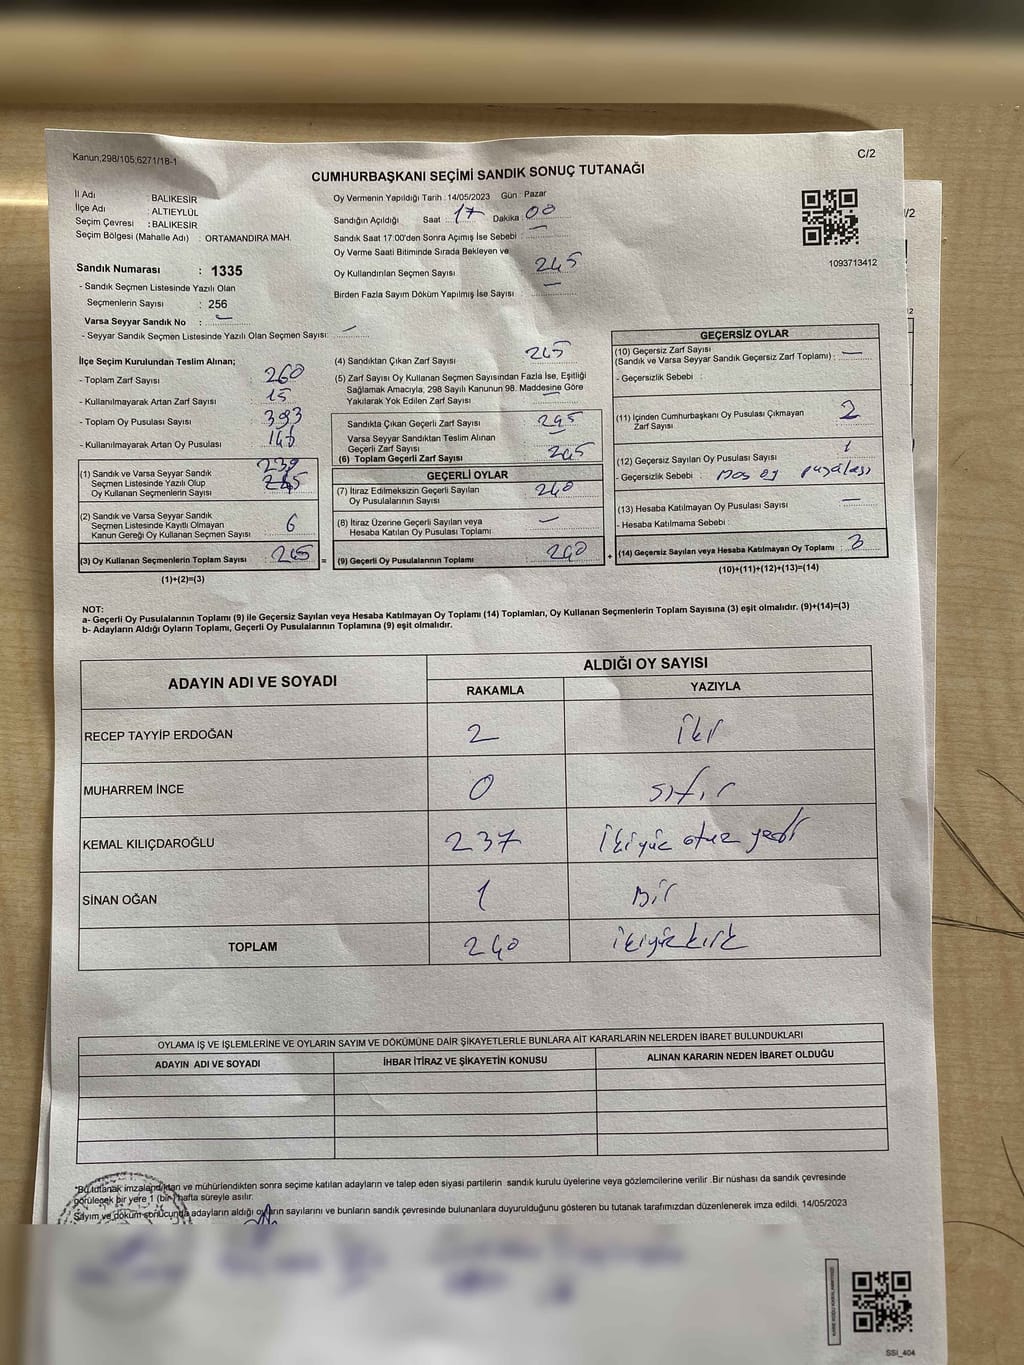 Kanun,298/105,6271/18-1
C/2
CUMHURBAŞKANI SEÇİMİ SANDIK SONUÇ TUTANAĞI
İl Adı : BALIKESİR
İlçe Adı : ALTIEYLÜL
Seçim Çevresi : BALIKESİR
Seçim Bölgesi (Mahalle Adı) : ORTAMANDIRA MAH.
Sandık Numarası : 1335
- Sandık Seçmen Listesinde Yazılı Olan
Seçmenlerin Sayısı : 256
Varsa Seyyar Sandık No :
- Seyyar Sandık Seçmen Listesinde Yazılı Olan Seçmen Sayısı:
Oy Vermenin Yapıldığı Tarih : 14/05/2023 Gün : Pazar
Sandığın Açıldığı Saat : 17 Dakika : 00
Sandık Saat 17:00'den Sonra Açımış İse Sebebi :
Oy Verme Saati Bitiminde Sırada Bekleyen ve
Oy Kullandırılan Seçmen Sayısı 245
Birden Fazla Sayım Döküm Yapılmış İse Sayısı
1093713412
İlçe Seçim Kurulundan Teslim Alınan;
- Toplam Zarf Sayısı 260
- Kullanılmayarak Artan Zarf Sayısı 15
- Toplam Oy Pusulası Sayısı 393
- Kullanılmayarak Artan Oy Pusulası
239
(1) Sandık ve Varsa Seyyar Sandık
Seçmen Listesinde Yazılı Olup
Oy Kullanan Seçmenlerin Sayısı
(2) Sandık ve Varsa Seyyar Sandık
Seçmen Listesinde Kayıtlı Olmayan
Kanun Gereği Oy Kullanan Seçmen Sayısı 6
(3) Oy Kullanan Seçmenlerin Toplam Sayısı 245 =
(1)+(2)=(3)
(4) Sandıktan Çıkan Zarf Sayısı 245
(5) Zarf Sayısı Oy Kullanan Seçmen Sayısından Fazla İse, Eşitliği
Sağlamak Amacıyla, 298 Sayılı Kanunun 98. Maddesine Göre
Yakılarak Yok Edilen Zarf Sayısı
Sandıkta Çıkan Geçerli Zarf Sayısı 245
Varsa Seyyar Sandıktan Teslim Alınan
Geçerli Zarf Sayısı
(6) Toplam Geçerli Zarf Sayısı 245
GEÇERLİ OYLAR
(7) İtiraz Edilmeksizin Geçerli Sayılan
Oy Pusulalarının Sayısı 240
(8) İtiraz Üzerine Geçerli Sayılan veya
Hesaba Katılan Oy Pusulası Toplamı
(9) Geçerli Oy Pusulalarının Toplamı 240 +
GEÇERSİZ OYLAR
(10) Geçersiz Zarf Sayısı
(Sandık ve Varsa Seyyar Sandık Geçersiz Zarf Toplamı) :
- Geçersizlik Sebebi :
(11) İçinden Cumhurbaşkanı Oy Pusulası Çıkmayan
Zarf Sayısı 2
(12) Geçersiz Sayılan Oy Pusulası Sayısı 1
- Geçersizlik Sebebi : Boş oy pusulası
(13) Hesaba Katılmayan Oy Pusulası Sayısı
- Hesaba Katılmama Sebebi
(14) Geçersiz Sayılan veya Hesaba Katılmayan Oy Toplamı 3
(10)+(11)+(12)+(13)=(14)
NOT:
a- Geçerli Oy Pusulalarının Toplamı (9) ile Geçersiz Sayılan veya Hesaba Katılmayan Oy Toplamı (14) Toplamları, Oy Kullanan Seçmenlerin Toplam Sayısına (3) eşit olmalıdır. (9)+(14)=(3)
b- Adayların Aldığı Oyların Toplamı, Geçerli Oy Pusulalarının Toplamına (9) eşit olmalıdır.
ADAYIN ADI VE SOYADI
ALDIĞI OY SAYISI
RAKAMLA YAZIYLA
RECEP TAYYİP ERDOĞAN 2 iki
MUHARREM İNCE 0 sıfır
KEMAL KILIÇDAROĞLU 237 ikiyüz otuz yedi
SİNAN OĞAN 1 Bir
TOPLAM 240 ikiyüzkırk
OYLAMA İŞ VE İŞLEMLERİNE VE OYLARIN SAYIM VE DÖKÜMÜNE DAİR ŞİKAYETLERLE BUNLARA AİT KARARLARIN NELERDEN İBARET BULUNDUKLARI
ADAYIN ADI VE SOYADI İHBAR İTİRAZ VE ŞİKAYETİN KONUSU ALINAN KARARIN NEDEN İBARET OLDUĞU
*Bu tutanak imzalandıktan ve mühürlendikten sonra seçime katılan adayların ve talep eden siyasi partilerin sandık kurulu üyelerine veya gözlemcilerine verilir .Bir nüshası da sandık çevresinde
görülecek bir yere 1 (bir) hafta süreyle asılır.
Sayım ve döküm sonucunda adayların aldığı oyların sayılarını ve bunların sandık çevresinde bulunanlara duyurulduğunu gösteren bu tutanak tarafımızdan düzenlenerek imza edildi. 14/05/2023
SSİ_404